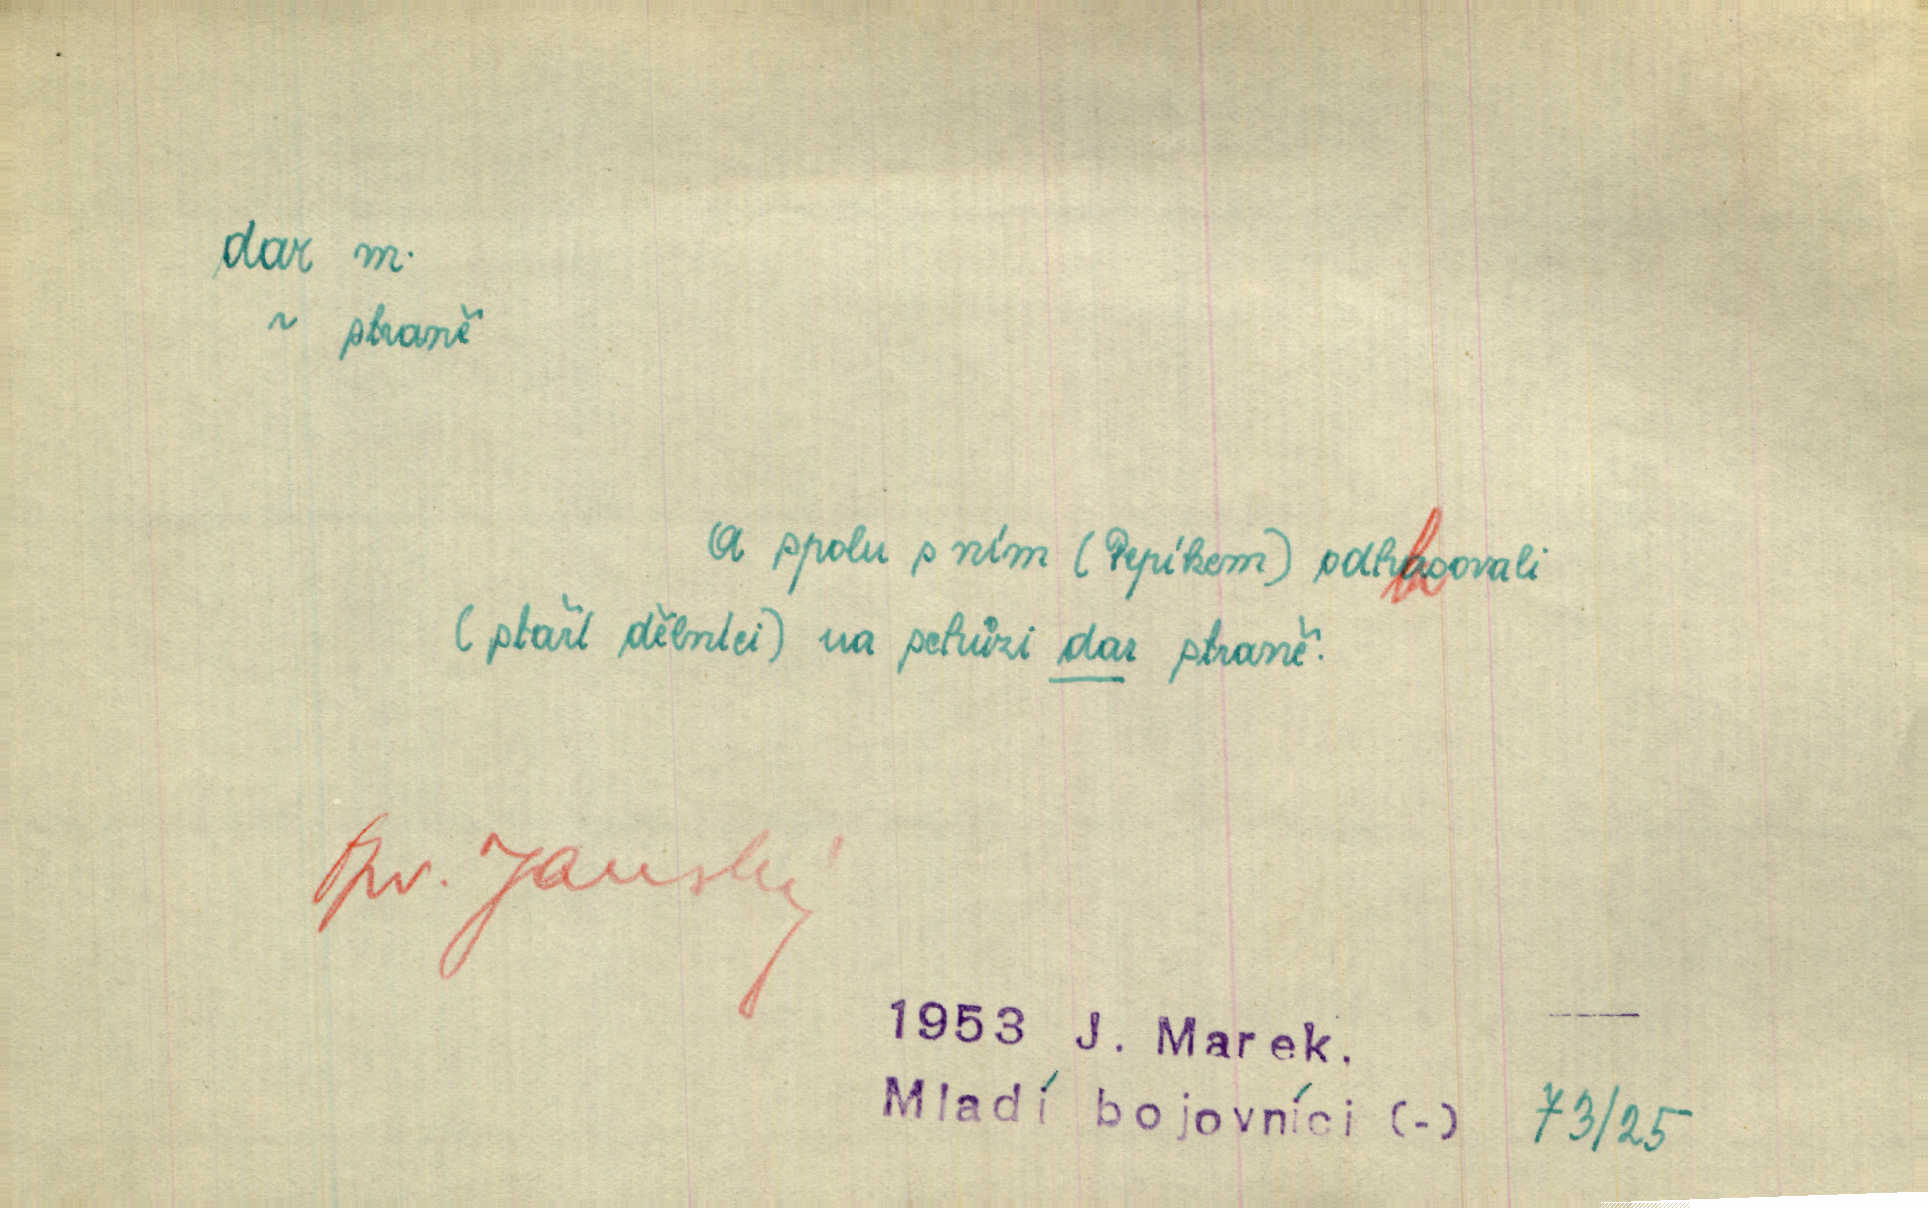 dar m.
~ straně
A spolu s ním (Pepíkem) odhlasovali
(staří dělníci) na schůzi dar straně.
Janský
1953 J. Marek.
Mladí bojovníci (-) 73/25